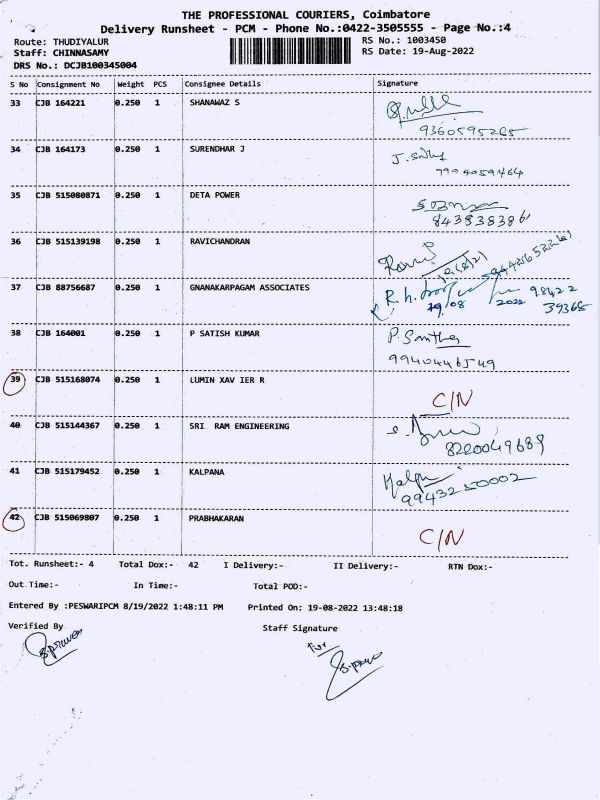 THE PROFESSIONAL COURIERS, Coimbatore
Delivery Runsheet - PCM - Phone No.:0422-3505555 - Page No.:4
Route: THUDIYALUR RS No.: 1003450
Staff: CHINNASAMY RS Date: 19-Aug-2022
DRS No.: DCJB100345004
S No Consignment No Weight PCS Consignee Details Signature
33 CJB 164221 0.250 1 SHANAWAZ S
9360595265
34 CJB 164173 0.250 1 SURENDHAR J
7994059464
35 CJB 515080871 0.250 1 DETA POWER
843838386
36 CJB 515139198 0.250 1 RAVICHANDRAN
37 CJB 88756687 0.250 1 GNANAKARPAGAM ASSOCIATES
19/08 2022 98422
39365
38 CJB 164001 0.250 1 P SATISH KUMAR P. Santha
9940446549
39 CJB 515168074 0.250 1 LUMIN XAV IER R
C/N
40 CJB 515144367 0.250 1 SRI RAM ENGINEERING
8220049689
41 CJB 515179452 0.250 1 KALPANA Kalpa
9943250002
42 CJB 515069807 0.250 1 PRABHAKARAN
C/N
Tot. Runsheet:- 4 Total Dox:- 42 I Delivery:- II Delivery:- RTN Dox:-
Out Time:- In Time:- Total POD:-
Entered By :PESWARIPCM 8/19/2022 1:48:11 PM Printed On: 19-08-2022 13:48:18
Verified By Staff Signature